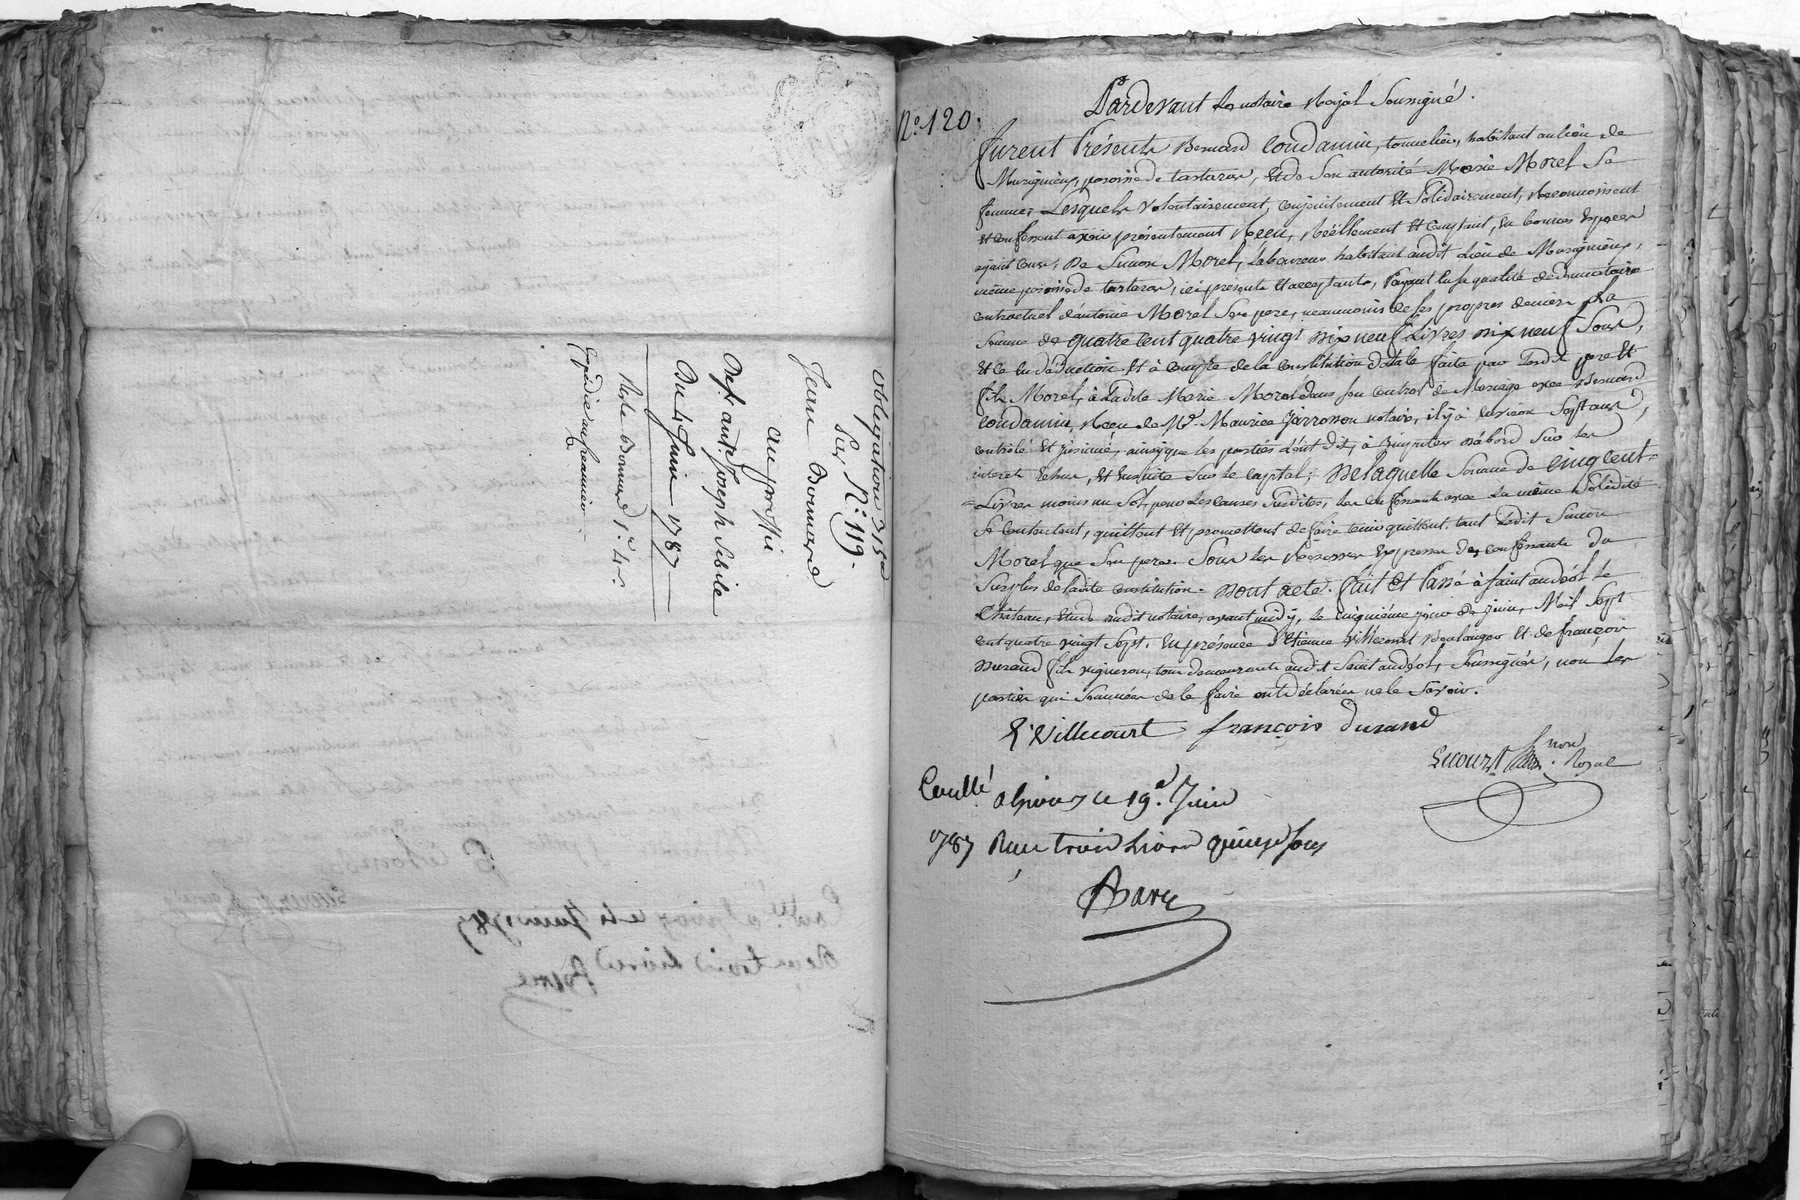 obligation 315#
sur N.° 119.
Jean Bonnard
au proffit
de S. ant. Joseph Sibile
Du 4 Juin 1787
Reste Bonnard 1# 4s.
Expédié au creancier
N.° 120.
Pardevant le notaire Royal soussigné.
furent Présents Bernard Condamin, tonnelier, habitant au lieu de
Musignieux, paroisse de tartaras, et de son autorité Marie Morel sa
femme, Lesquels volontairement, conjointement et solidairement, Reconnoissent
et confessent avoir présentement Recu, Réellement et comptant, en bonnes especes
ayant cours, De Simon Morel, laboureur habitant audit lieu de Musignieux,
même paroisse de tartaras, ici present et acceptant, Payant en sa qualité de donnataire
contractuel d'antoine Morel son pere, neanmoins de ses propres deniers La
somme de quatre cent quatre vingt dix neuf Livres dix neuf Sous,
et ce en déduction et à compte de la constitution dotale faite par Lesdit pere et
fils Morel, à Ladite Marie Morel dans son contrat de Mariage avec Bernard
Condamin, Recu de M.e Maurice Jarrosson notaire, il y à environ Sept ans,
controlé et insinué, ainsi que les parties l'ont dit, à imputer d'abord sur les
interets échus, et ensuite sur le capital; De laquelle somme de cinq cent
Livres moins un sol, pour les causes susdites, les confessants avec la même solidité
se contentent, quittent et promettent de faire tenir quittent, tant Ledit Simon
Morel que son pere. Sous les Reserves expresses des confessants du
surplus de ladite constitution. Dont acte. fait et Passé à saint andéol le
Château, etude dudit notaire, avant midy, le cinquième jour de juin, Mil sept
cent quatre vingt sept. En présence d'Etienne Villecourt Boulanger et de françois
Durand fils vigneron, tous demeurants audit saint andéol, soussignés, non les
parties qui sommées de le faire ont déclarées ne le savoir.
E. Villecourt françois durand
Royal
Conllé a givors le 19.e Juin
1787 Recu trois Livres quinze sous